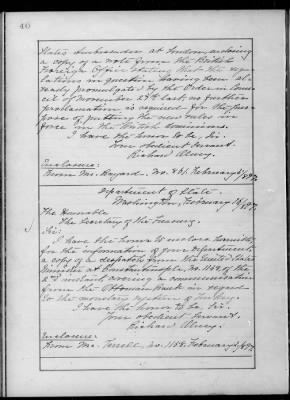 40
States Ambassador at London, enclosing
a copy of a note from the British
Foreign Office stating that the regu-
lations in question having been al-
ready promulgated by the Order in Coun-
cil of November 27th last, no further
proclamation is required for the pur-
pose of putting the new rules in
force in the British dominions.
I have the honor to be, Sir:
Your obedient servant,
Richard Olney.
Enclosure:
From Mr. Bayard, No. 861, February
Department of State,
Washington, February
The Honorable
The Secretary of the Treasury.
Sir:
I have the honor to enclose herewith
for the information of your Department
a copy of a despatch from the United States
Minister at Constantinople, No. 1158, of the
2nd instant, covering a communication
from the Ottoman Bank in regard
to the monetary system of Turkey.
I have the honor to be, Sir:
Your obedient servant,
Richard Olney.
Enclosure:
From Mr. Terrell, No. 1158, February